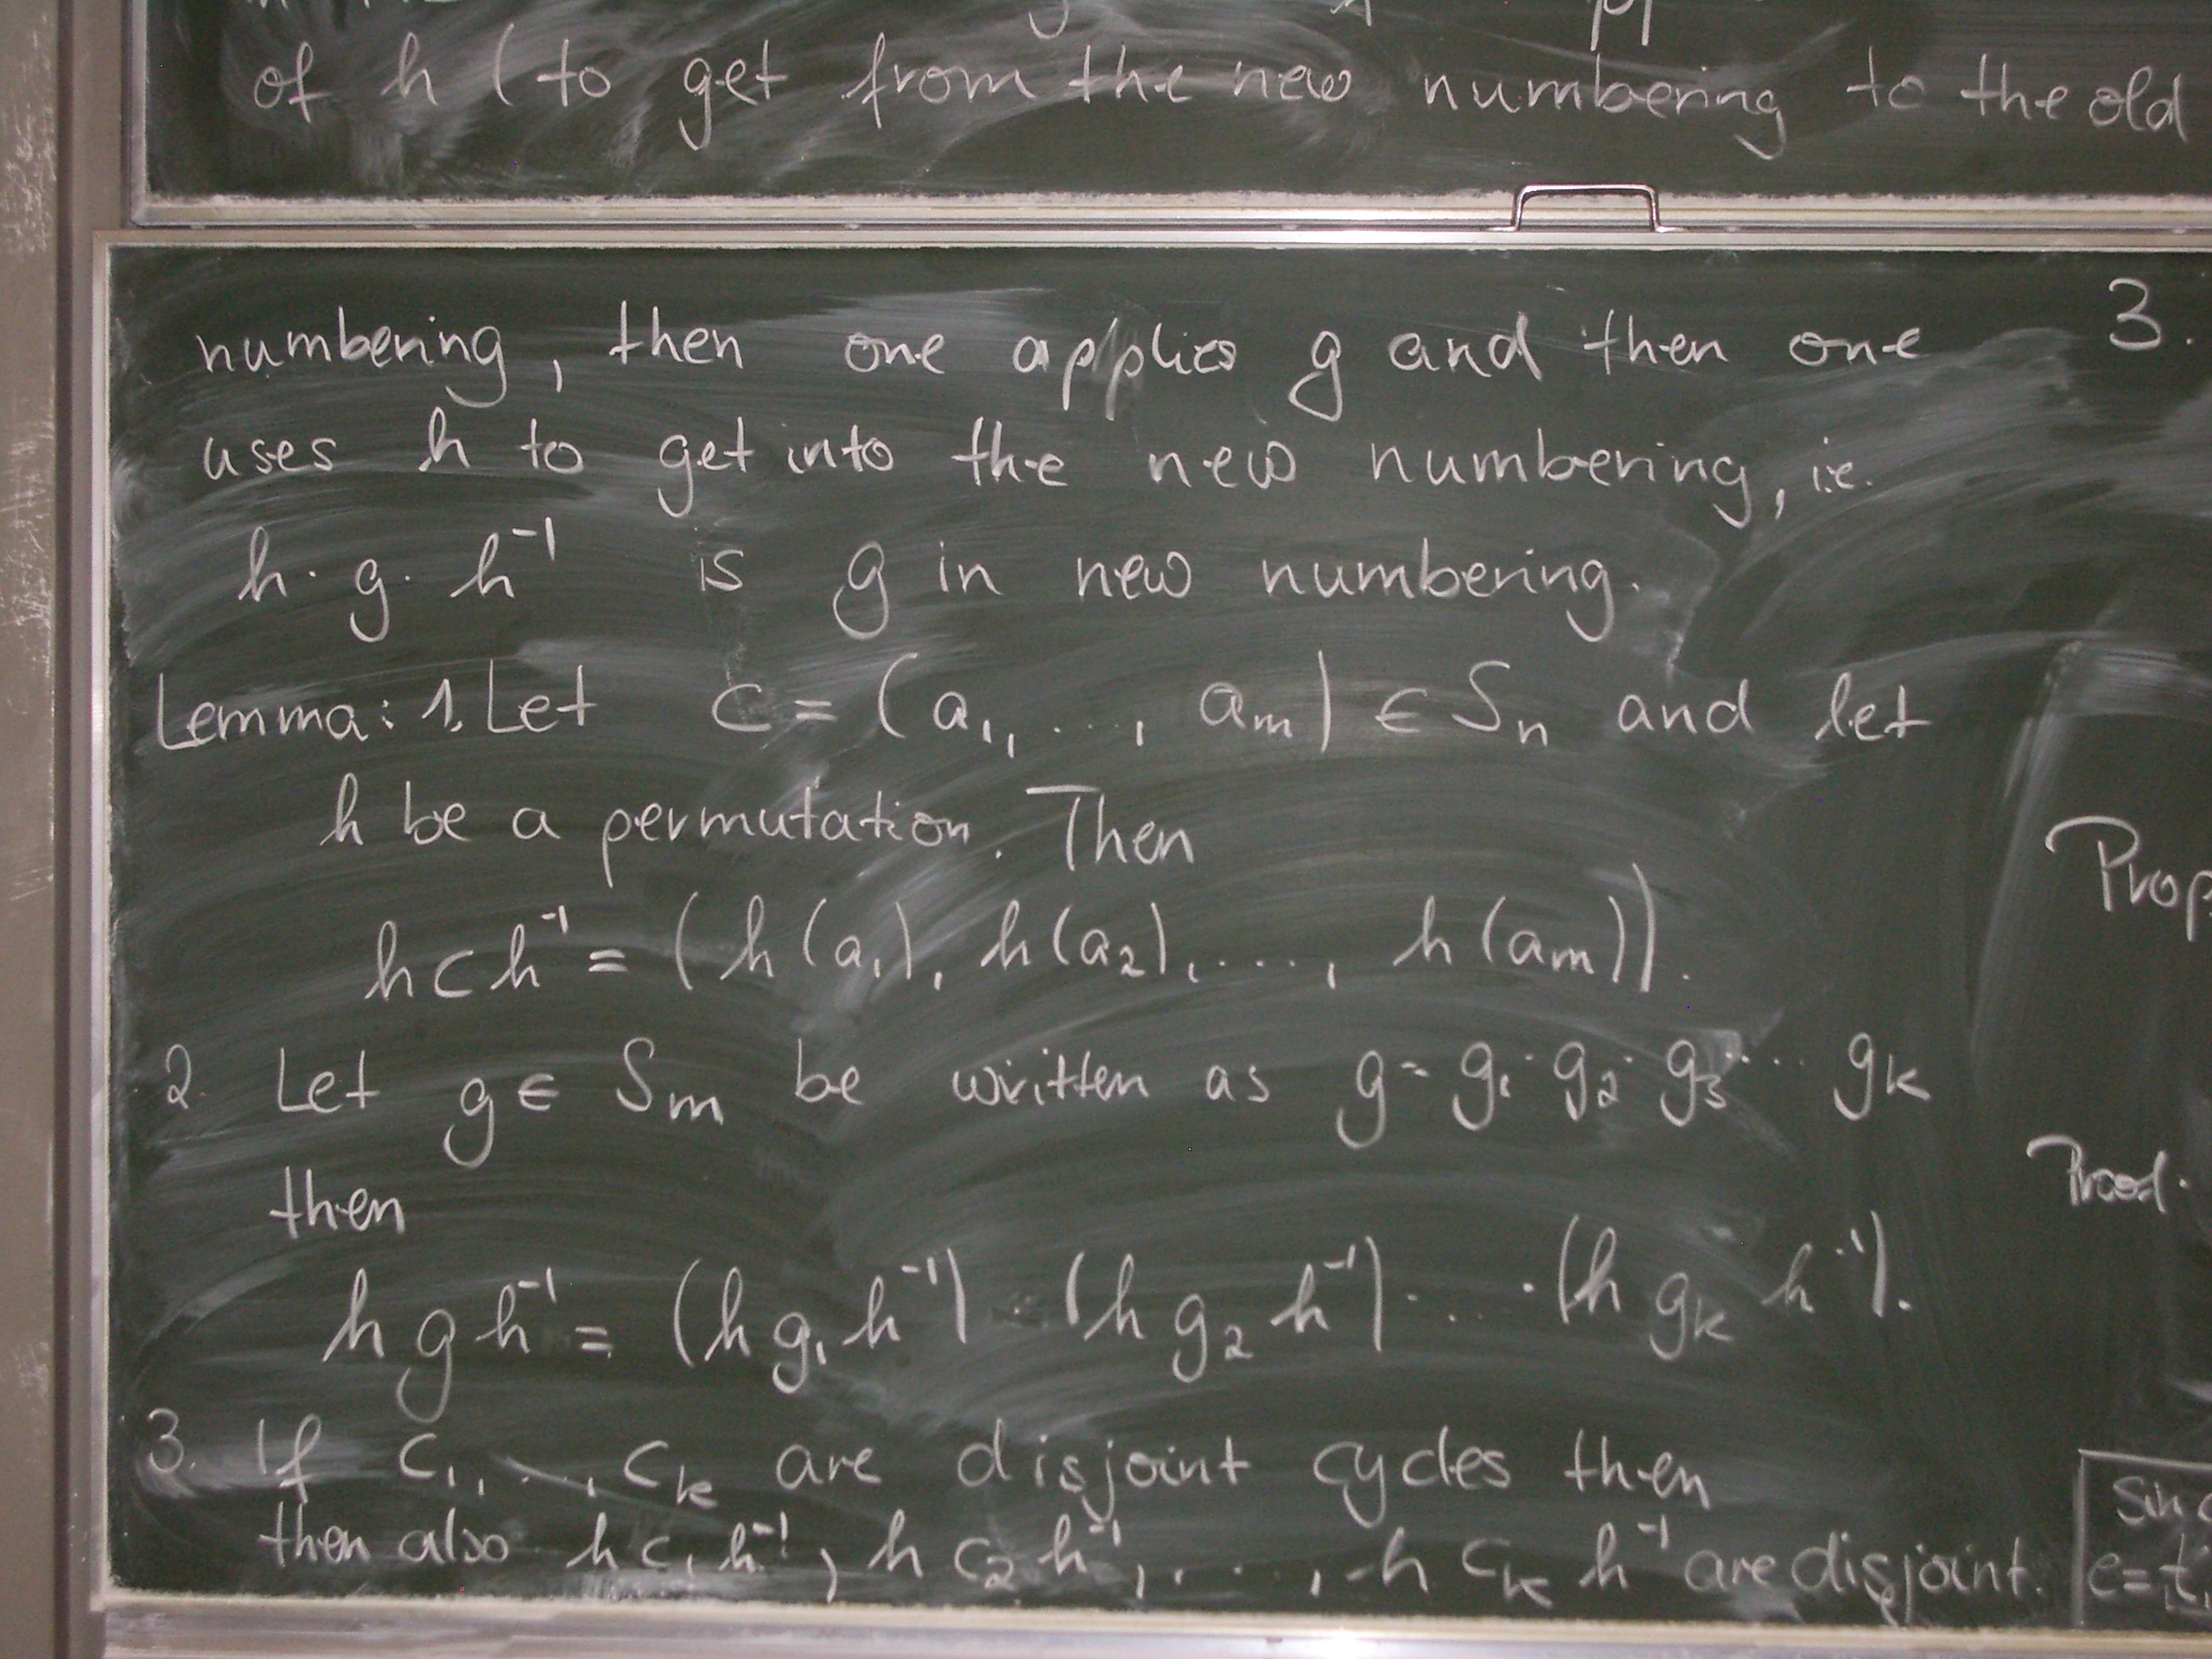 of h (to get from the new numbering to the old
numbering, then one applies g and then one
uses h to get into the new numbering, i.e.
h · g · h⁻¹ is g in new numbering.
Lemma: 1. Let c = (a₁, ..., aₘ) ∈ Sₙ and let
h be a permutation. Then
h c h⁻¹ = (h(a₁), h(a₂), ...., h(aₘ)).
2. Let g ∈ Sₘ be written as g = g₁ · g₂ · g₃ ··· gₖ
then
h g h⁻¹ = (h g₁ h⁻¹) · (h g₂ h⁻¹) · ... · (h gₖ h⁻¹).
3. If c₁, ..., cₖ are disjoint cycles then
then also h c₁ h⁻¹, h c₂ h⁻¹, ...., h cₖ h⁻¹ are disjoint.
3.
Prop
Proof.
Sin
e =